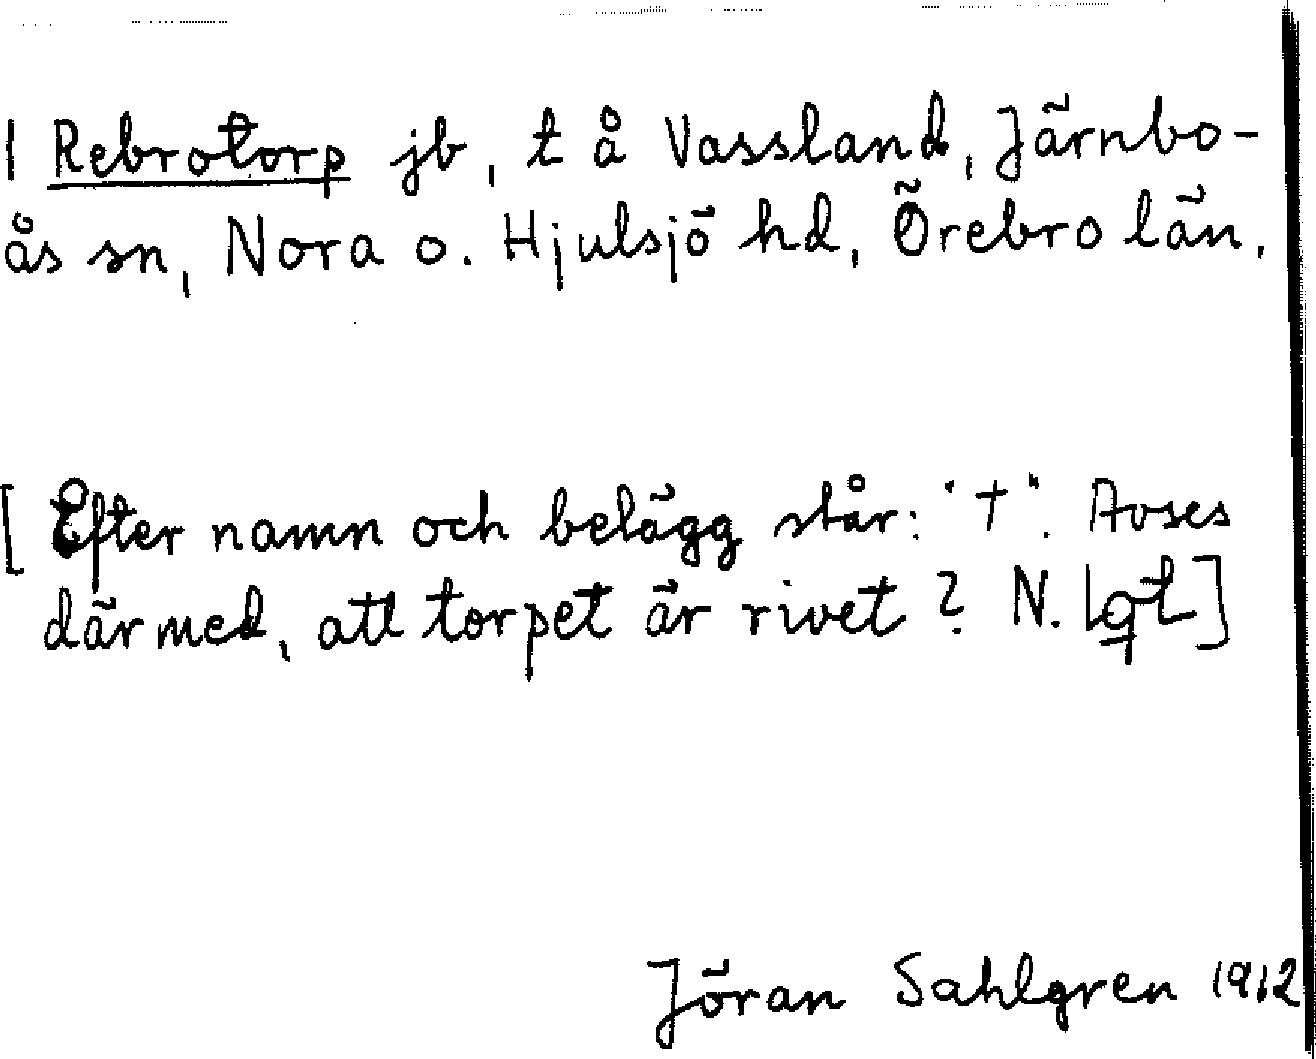 | Rebrotorp jb, t å Vassland, Järnbo-
ås sn, Nora o. Hjulsjö hd, Örebro län.
[Efter namn och belägg står: "†". Avses
därmed, att torpet är rivet? N. Lgt]
Jöran Sahlgren 1912